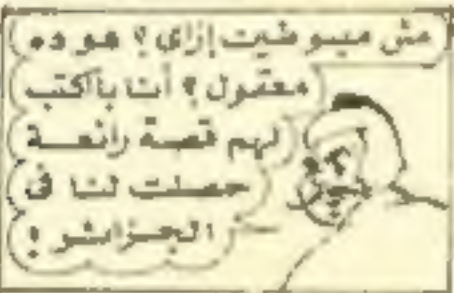 مش مبسوطين إزاى؟ هو ده
معقول؟ أنا باكتب
لهم قصة رائعة
حصلت لنا فى
الجزائر!